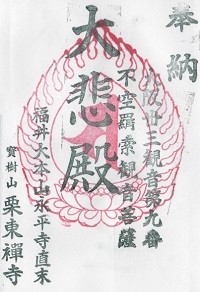 奉納
三観音第九番
不空羂索観音菩薩
大悲殿
福井大本山永平寺直末
寳樹山 栗東禪寺